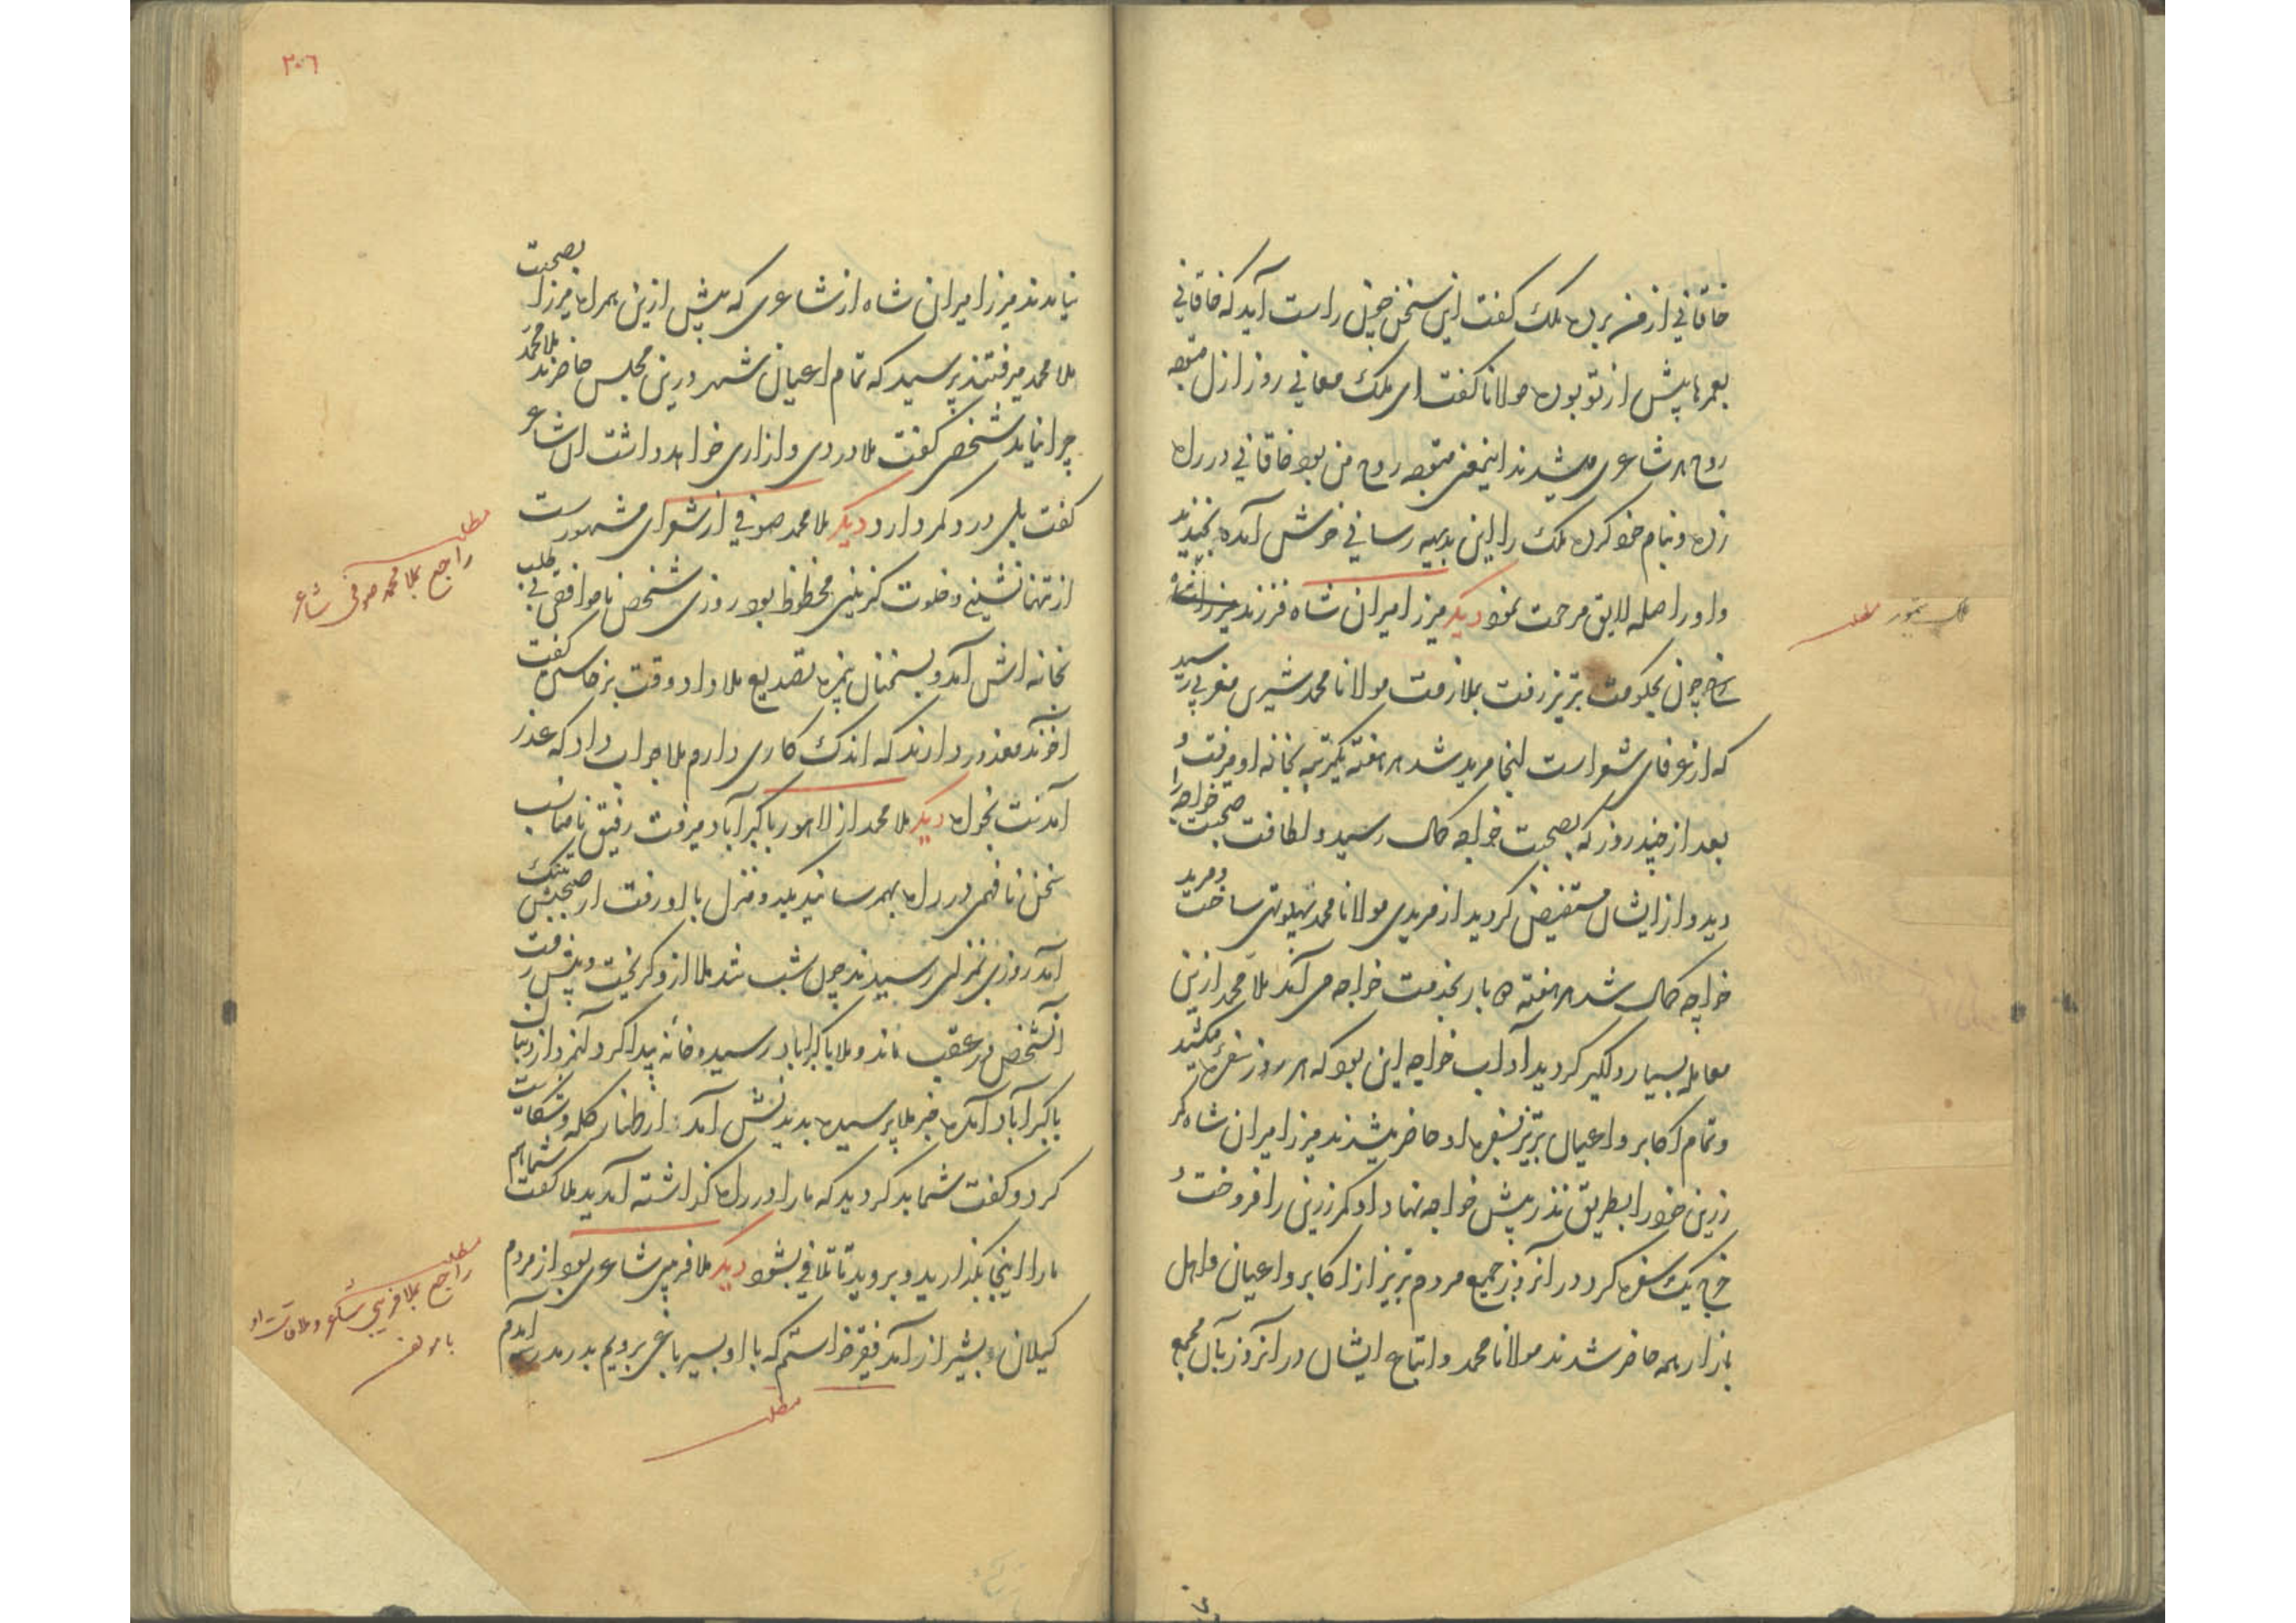 خاقانی از من برده ملک گفت این سخن چنین راست آید که خاقانی
بعمرها پیش از تو بوده مولانا گفت ای ملک معانی روز ازل متوجه
روح هر شاعری میشدند اینمعنی متوجه روح من بود خاقانی در راه
زده و بنام خود کرده ملک را این بدیهه رسانی خوش آمده بخندید
و او را صله لایق مرحمت نمود دیگر میرزا میران شاه فرزند میرزا
شاهرخ چون بحکومت تبریز رفت بملازمت مولانا محمد شیرین مغربی رسید
که از عرفای شعراست آنجا مرید شد هر هفته یکمرتبه بخانه او میرفت و
بعد از چند روز که بصحبت خواجه کمال رسید و لطافت صحبت خواجه را
دید و از ایشان مستفیض گردید از مریدی مولانا محمد پهلو تهی ساخت و مرید
خواجه کمال شد هر هفته ده بار بخدمت خواجه می آمد ملا محمد ازین
معامله بسیار دلگیر گردید آداب خواجه این بود که هر روز سفره میکشید
و تمام اکابر و اعیان تبریز بسفره او حاضر میشدند میرزا میران شاه کمر
زرین خود را بطریق نذر پیش خواجه نهاد او کمر زرین را فروخت و
خرج یک سفره کرد در آنروز جمیع مردم تبریز از اکابر و اعیان و اهل
بازار همه حاضر شدند مولانا محمد و اتباع ایشان در آنروز بآن مجمع
مطلب
۲۰۶
نیامدند میرزا میران شاه از شاعری که پیش ازین همراه میرزا بصحبت
ملا محمد میرفتند پرسید که تمام اعیان شهر درین مجلس حاضرند ملا محمد
چرا نیامد شخصی گفت ملا دردی و ازاری خواهد داشت آن شاعر
گفت بلی درد کمر دارد دیگر ملا محمد صوفی از شعرای مشهورست
از تنهانشینی و خلوت گزینی محظوظ بود روزی شخص ناموافقی بی طلب
بخانه اش آمد و بسخنان بیمزه تصدیع ملا داد وقت برخاستن گفت
آخوند معذور دارند که اندک کاری دارم ملا جواب داد که عذر
آمدنت بخواه دیگر ملا محمد از لاهور باکبرآباد میرفت رفیق نامناسب
سخن نافهمی در راه بهمرسانید یکدو منزل با او رفت از صحبتش بتنگ
آمد روزی بمنزلی رسیدند چون شب شد ملا ازو گریخت و پیش رفت
آنشخص در عقب ماند و ملا باکبراباد رسید و خانه پیدا کرد آنمرد از دنبال
باکبرآباد آمده خبر ملا پرسیده بدیدنش آمد اظهار گله و شکایت
کرد و گفت شما بد کردید که ما را در راه گذاشته آمدید ملا گفت شما هم
ما را اینجا بگذارید و بروید تا تلافی بشود دیگر ملا فریبی شاعری بود از مردم
گیلان بشیراز آمد فقیر خواستم که با او بسیر باغی برویم بدر مدرسه آمدم
مطلب
راجع بملا محمد صوفی شاعر
مطلب
راجع بملا فریبی شاعر و ملاقات او
با مولف
مطلب